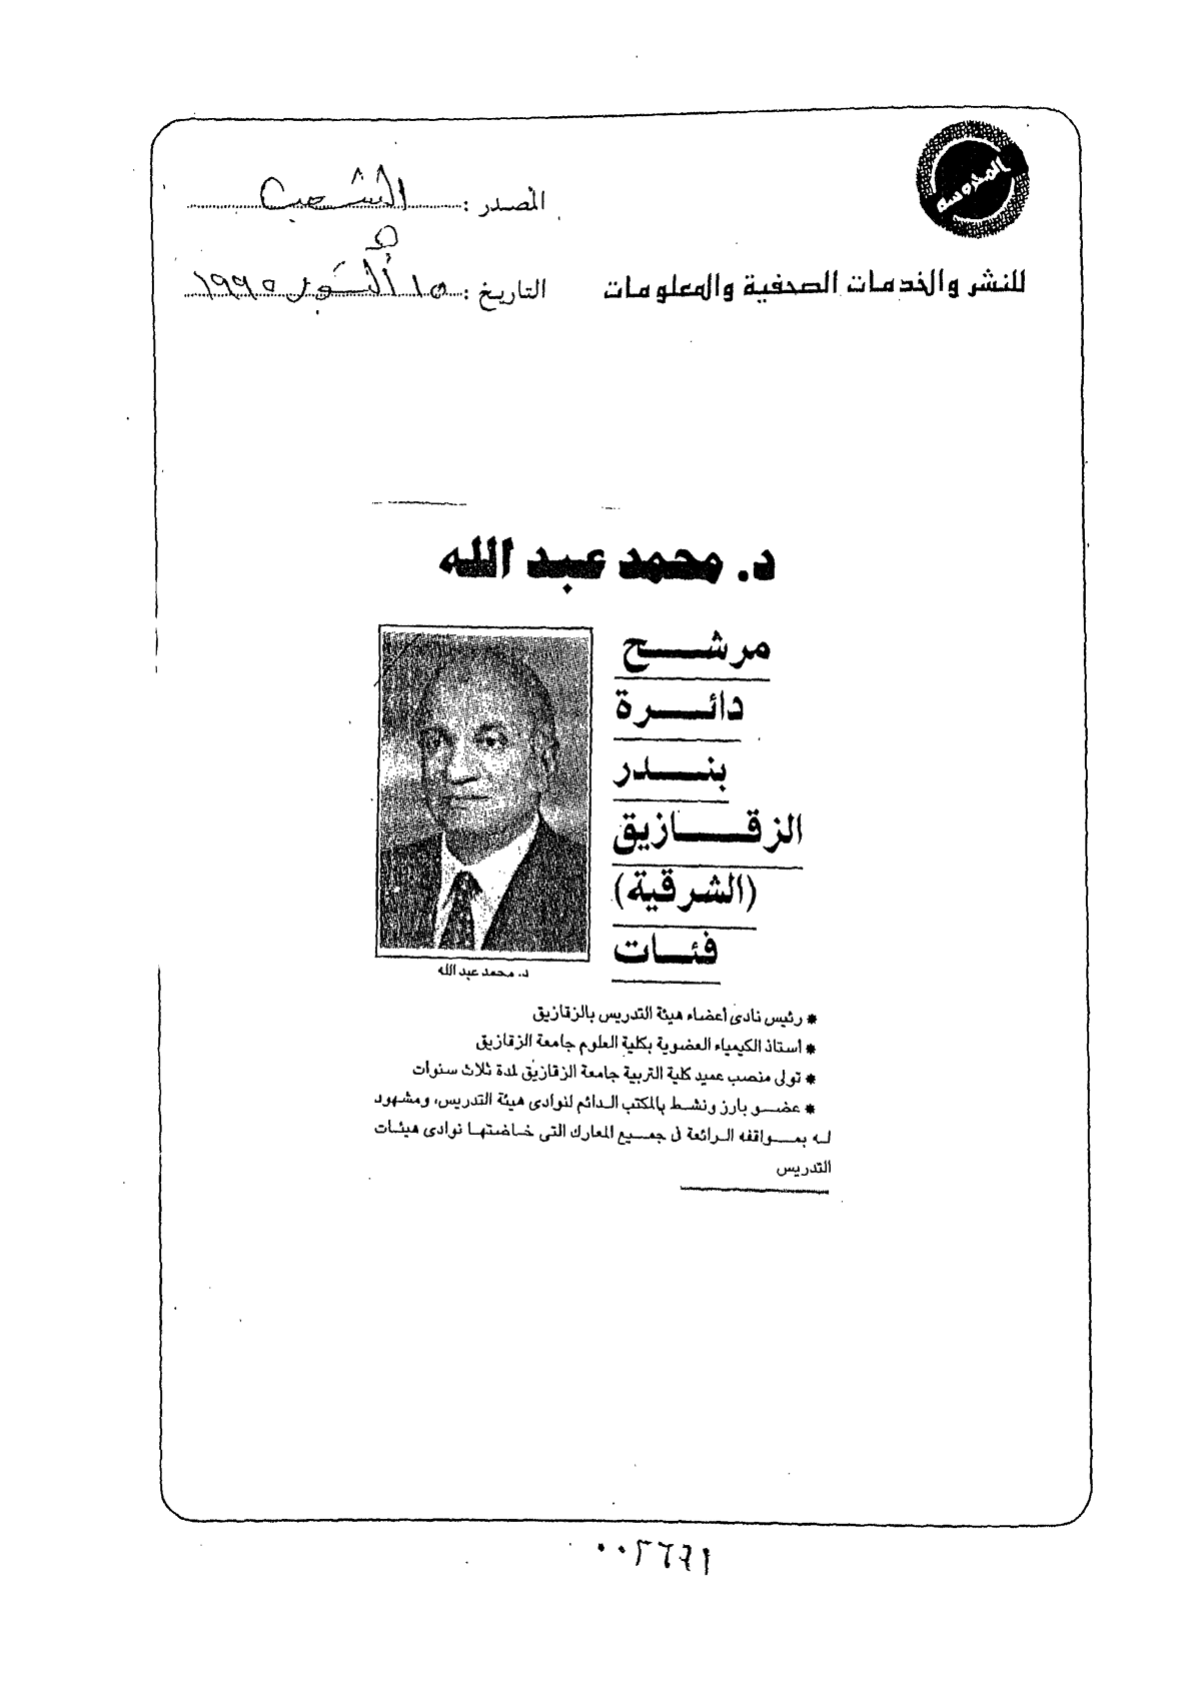 المحروسة
المصدر : الشعب
للنشر والخدمات الصحفية والمعلومات
التاريخ : ١٥ أكتوبر ١٩٩٥
د. محمد عبد الله
مرشح
دائرة
بندر
الزقازيق
(الشرقية)
فئات
د. محمد عبد الله
* رئيس نادى أعضاء هيئة التدريس بالزقازيق
* أستاذ الكيمياء العضوية بكلية العلوم جامعة الزقازيق
* تولى منصب عميد كلية التربية جامعة الزقازيق لمدة ثلاث سنوات
* عضو بارز ونشط بالمكتب الدائم لنوادى هيئة التدريس، ومشهود
له بمواقفه الرائعة فى جميع المعارك التى خاضتها نوادى هيئات
التدريس